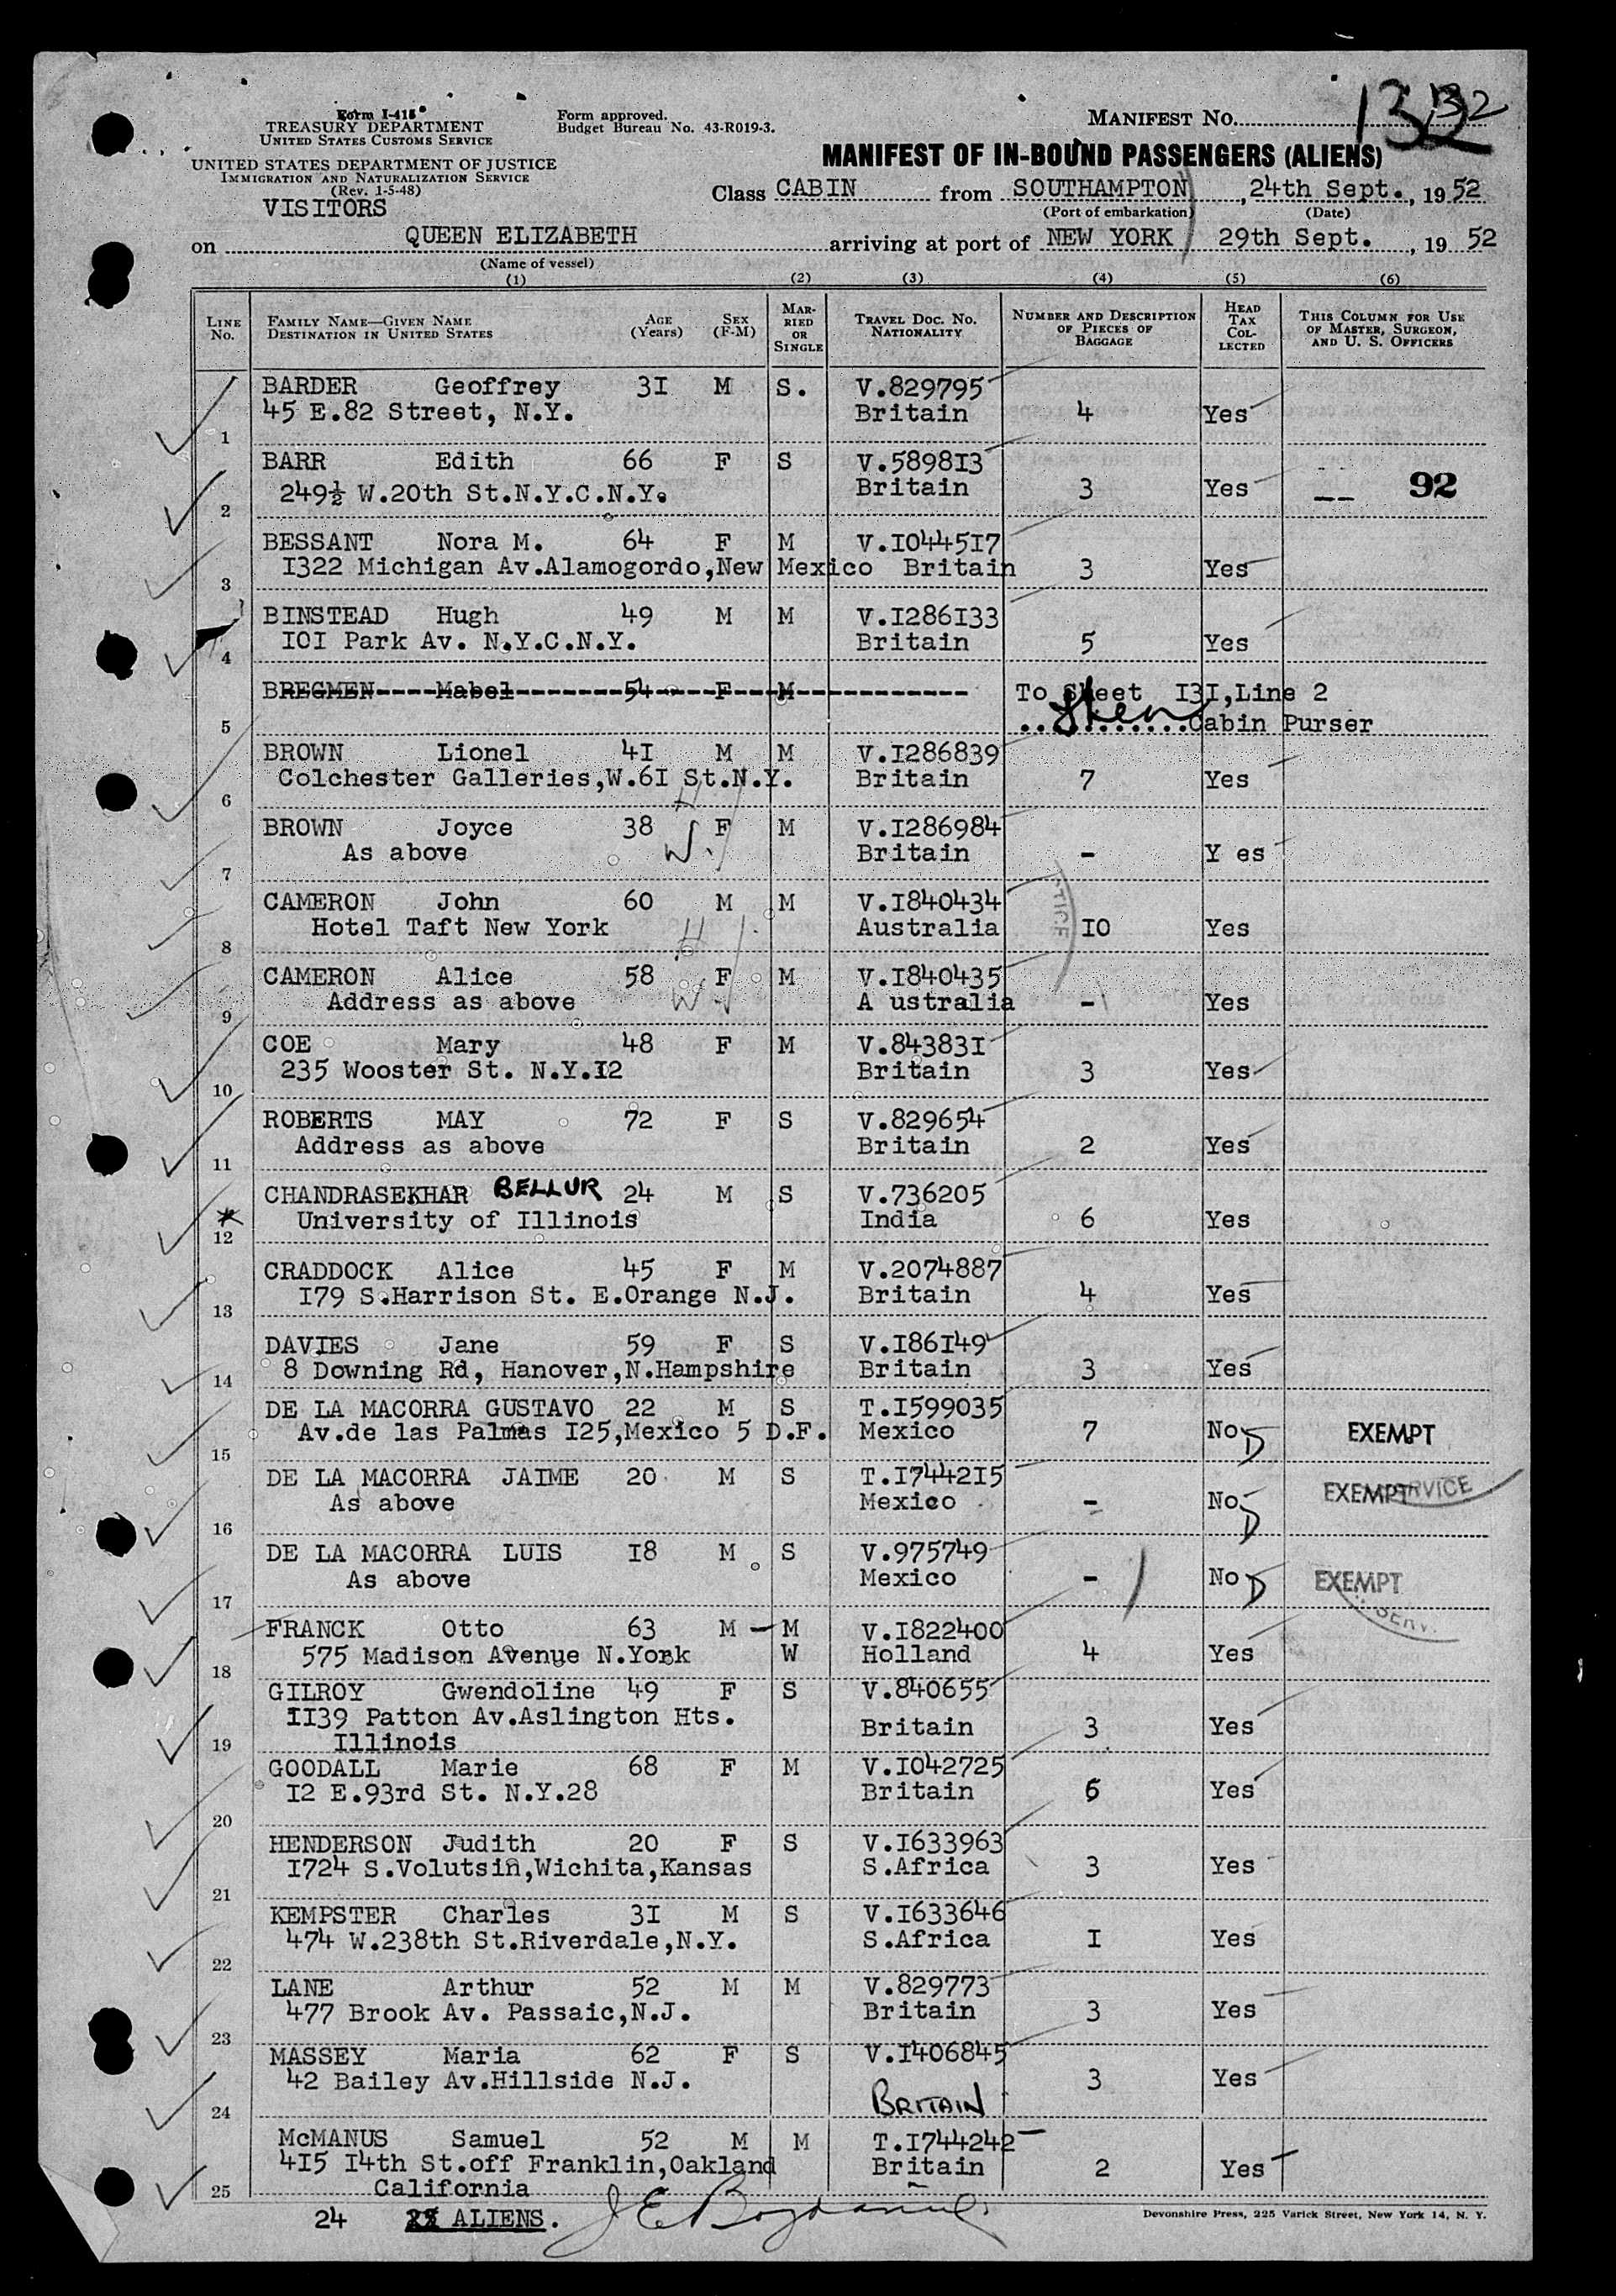 Form I-415
TREASURY DEPARTMENT
UNITED STATES CUSTOMS SERVICE
UNITED STATES DEPARTMENT OF JUSTICE
IMMIGRATION AND NATURALIZATION SERVICE
(Rev. 1-5-48)
VISITORS
Form approved.
Budget Bureau No. 43-R019-3.
MANIFEST NO. 132
MANIFEST OF IN-BOUND PASSENGERS (ALIENS)
Class CABIN from SOUTHAMPTON, 24th Sept., 1952
(Port of embarkation) (Date)
on QUEEN ELIZABETH arriving at port of NEW YORK 29th Sept., 1952
(Name of vessel)
(1) (2) (3) (4) (5) (6)
LINE NO. FAMILY NAME—GIVEN NAME DESTINATION IN UNITED STATES AGE (Years) SEX (F-M) MARRIED OR SINGLE TRAVEL DOC. NO. NATIONALITY NUMBER AND DESCRIPTION OF PIECES OF BAGGAGE HEAD TAX COLLECTED THIS COLUMN FOR USE OF MASTER, SURGEON, AND U. S. OFFICERS
BARDER Geoffrey 3I M S. V.829795
45 E.82 Street, N.Y. Britain 4 Yes
1
BARR Edith 66 F S V.5898I3
249½ W.20th St.N.Y.C.N.Y. Britain 3 Yes 92
2
BESSANT Nora M. 64 F M V.I0445I7
I322 Michigan Av.Alamogordo,New Mexico Britain 3 Yes
3
BINSTEAD Hugh 49 M M V.I286I33
I0I Park Av. N.Y.C.N.Y. Britain 5 Yes
4
BREGMEN Mabel 54 F M To Sheet I3I,Line 2
5 Cabin Purser
BROWN Lionel 4I M M V.I286839
Colchester Galleries,W.6I St.N.Y. Britain 7 Yes
6 H
BROWN Joyce 38 F M V.I286984
As above W. Britain - Y es
7
CAMERON John 60 M M V.I840434
Hotel Taft New York H Australia I0 Yes
8
CAMERON Alice 58 F M V.I840435
Address as above W A ustralia - Yes
9
COE Mary 48 F M V.84383I
235 Wooster St. N.Y.I2 Britain 3 Yes
10
ROBERTS MAY 72 F S V.829654
Address as above Britain 2 Yes
11
CHANDRASEKHAR BELLUR 24 M S V.736205
University of Illinois India 6 Yes
12
CRADDOCK Alice 45 F M V.2074887
I79 S.Harrison St. E.Orange N.J. Britain 4 Yes
13
DAVIES Jane 59 F S V.I86I49
8 Downing Rd, Hanover,N.Hampshire Britain 3 Yes
14
DE LA MACORRA GUSTAVO 22 M S T.I599035
Av.de las Palmas I25,Mexico 5 D.F. Mexico 7 No EXEMPT
15
DE LA MACORRA JAIME 20 M S T.I7442I5
As above Mexico - No EXEMPT
16
DE LA MACORRA LUIS I8 M S V.975749
As above Mexico - No EXEMPT
17
FRANCK Otto 63 M M V.I822400
575 Madison Avenue N.York W Holland 4 Yes
18
GILROY Gwendoline 49 F S V.840655
II39 Patton Av.Aslington Hts. Britain 3 Yes
19 Illinois
GOODALL Marie 68 F M V.I042725
I2 E.93rd St. N.Y.28 Britain 6 Yes
20
HENDERSON Judith 20 F S V.I633963
I724 S.Volutsin,Wichita,Kansas S.Africa 3 Yes
21
KEMPSTER Charles 3I M S V.I633646
474 W.238th St.Riverdale,N.Y. S.Africa I Yes
22
LANE Arthur 52 M M V.829773
477 Brook Av. Passaic,N.J. Britain 3 Yes
23
MASSEY Maria 62 F S V.I406845
42 Bailey Av.Hillside N.J. 3 Yes
24 BRITAIN
McMANUS Samuel 52 M M T.I744242
4I5 I4th St.off Franklin,Oakland Britain 2 Yes
25 California
24 ALIENS.
Devonshire Press, 225 Varick Street, New York 14, N. Y.